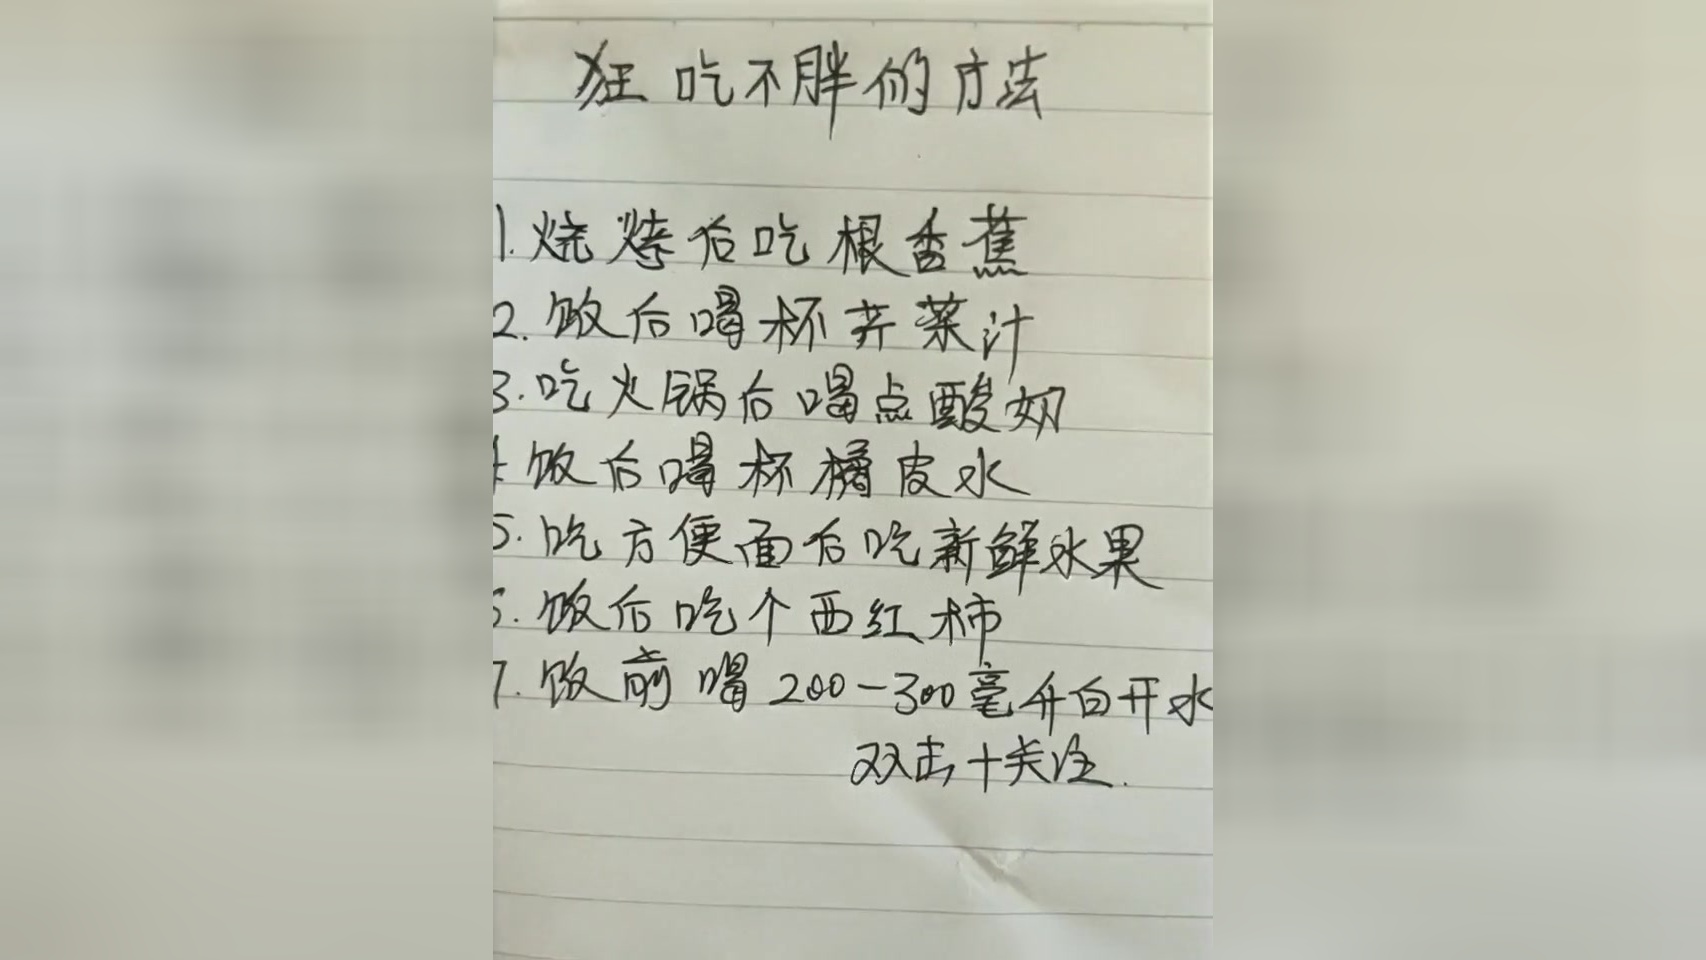 狂吃不胖的方法
1.烧烤后吃根香蕉
2.饭后喝杯芹菜汁
3.吃火锅后喝点酸奶
4.饭后喝杯橘皮水
5.吃方便面后吃新鲜水果
6.饭后吃个西红柿
7.饭前喝200-300毫升白开水
双击+关注.